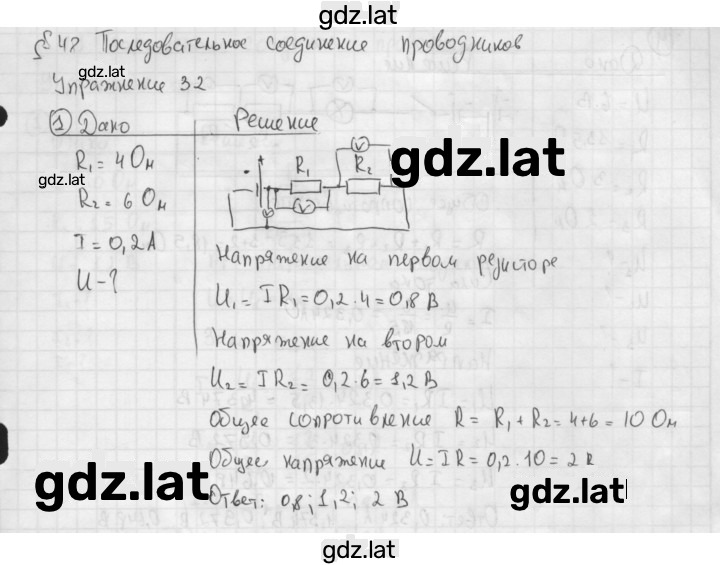 gdz.lat
§ 47 Последовательное соединение проводников
gdz.lat
Упражнение 32
1) Дано
Решение
R₁ = 4 Ом
gdz.lat
R₂ = 6 Ом
I = 0,2 А
U - ?
R₁
V
R₂
V
gdz.lat
Напряжение на первом резисторе
U₁ = IR₁ = 0,2 · 4 = 0,8 В
Напряжение на втором
U₂ = IR₂ = 0,2 · 6 = 1,2 В
Общее сопротивление R = R₁ + R₂ = 4+6 = 10 Ом
Общее напряжение U = IR = 0,2 · 10 = 2 В
Ответ: 0,8; 1,2; 2 В
gdz.lat
gdz.lat
gdz.lat